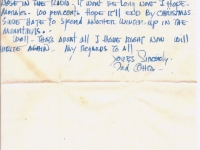 NOSE IN THE RADIO. IT WONT BE LONG NOW I HOPE.
100 PERCENTS HOPE IT'LL END BY CHRISTMAS
HATE TO SPEND ANOTHER WINTER UP IN THE
MOUNTAINS.
WELL - THATS ABOUT ALL I HAVE RIGHT NOW WILL
WRITE AGAIN. MY REGARDS TO ALL
YOURS SINCERELY